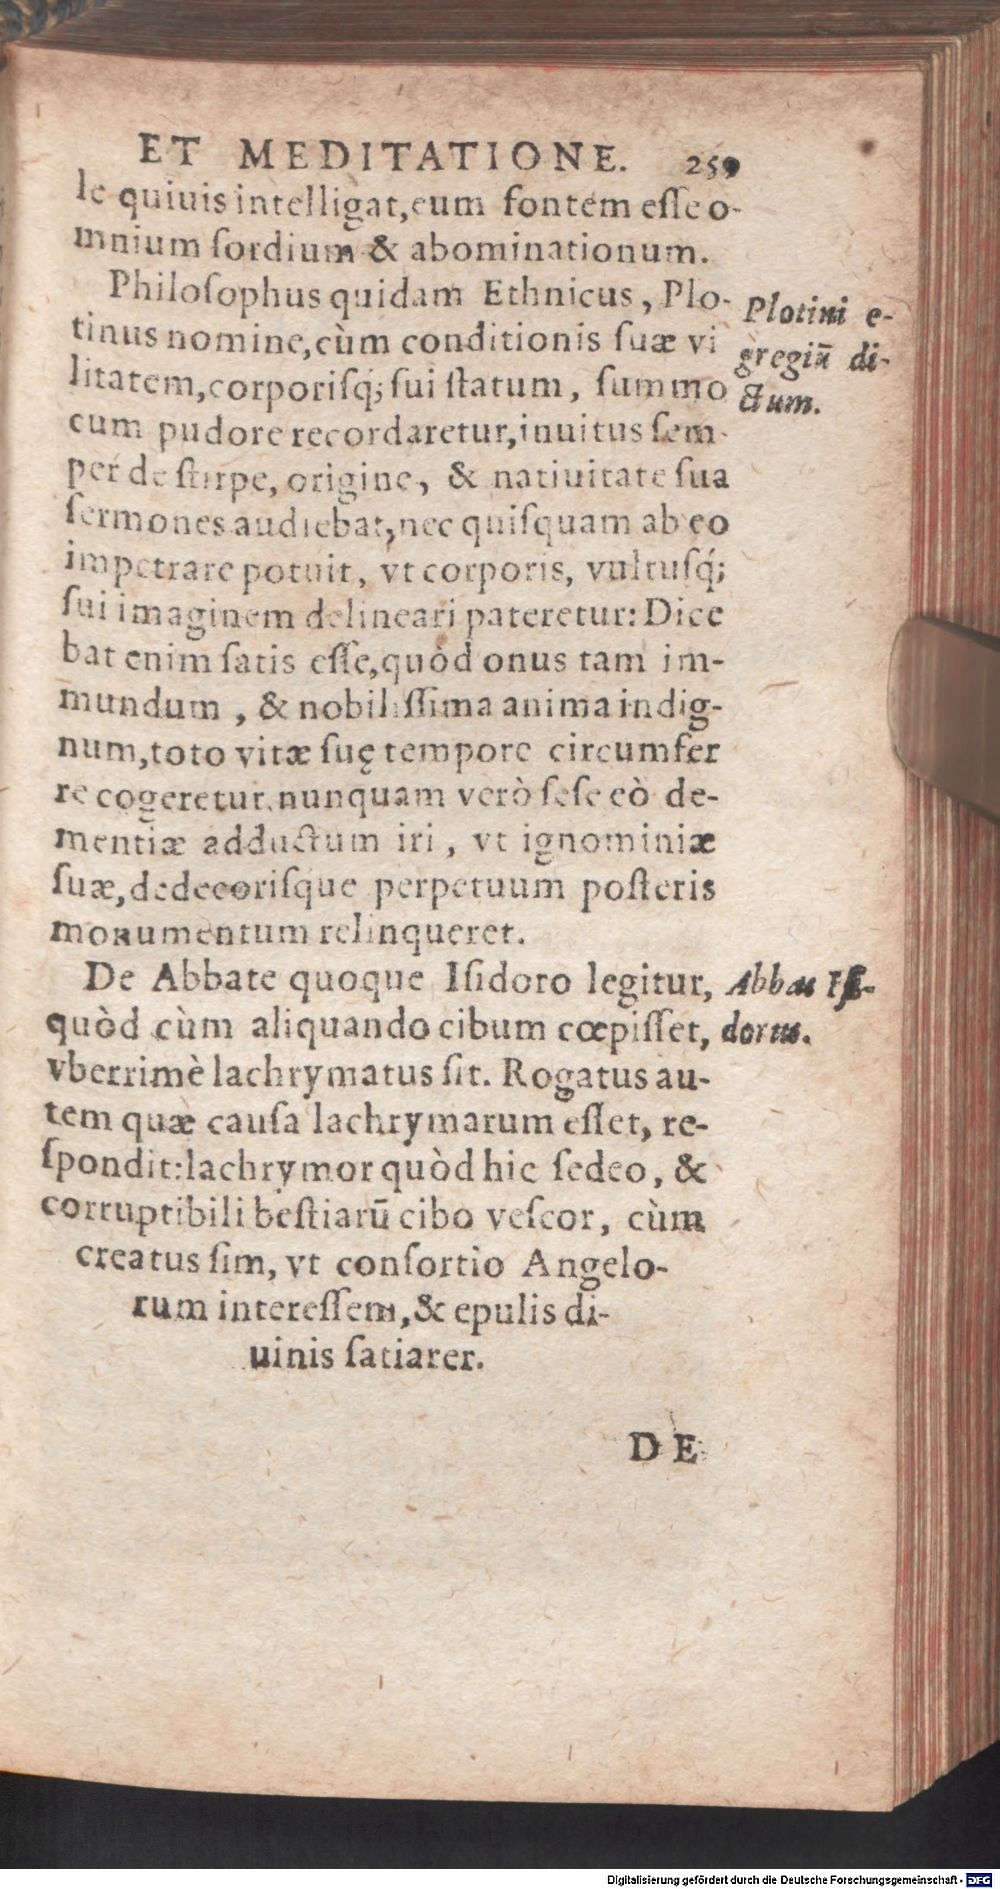 ET MEDITATIONE. 259
le quiuis intelligat, eum fontem eſſe o-
mnium ſordium & abominationum.
Philoſophus quidam Ethnicus, Plo-
tinus nomine, cùm conditionis ſuæ vi
litatem, corporiſq́; ſui ſtatum, ſummo
cum pudore recordaretur, inuitus ſem-
per de ſtirpe, origine, & natiuitate ſua
ſermones audiebat, nec quiſquam ab eo
impetrare potuit, vt corporis, vultuſq́;
ſui imaginem delineari pateretur: Dice
bat enim ſatis eſſe, quòd onus tam im-
mundum, & nobiliſſima anima indig-
num, toto vitæ ſuę tempore circumfer
re cogeretur, nunquam verò ſeſe eò de-
mentiæ adductum iri, vt ignominiæ
ſuæ, dedecoriſque perpetuum poſteris
monumentum relinqueret.
Plotini e-
gregiū di-
ctum.
De Abbate quoque Iſidoro legitur,
quòd cùm aliquando cibum cœpiſſet,
vberrimè lachrymatus ſit. Rogatus au-
tem quæ cauſa lachrymarum eſſet, re-
ſpondit: lachrymor quòd hic ſedeo, &
corruptibili beſtiarū cibo veſcor, cùm
creatus ſim, vt conſortio Angelo-
rum intereſſem, & epulis di-
uinis ſatiarer.
Abbas Iſi-
dorus.
DE
Digitalisierung gefördert durch die Deutsche Forschungsgemeinschaft - DFG